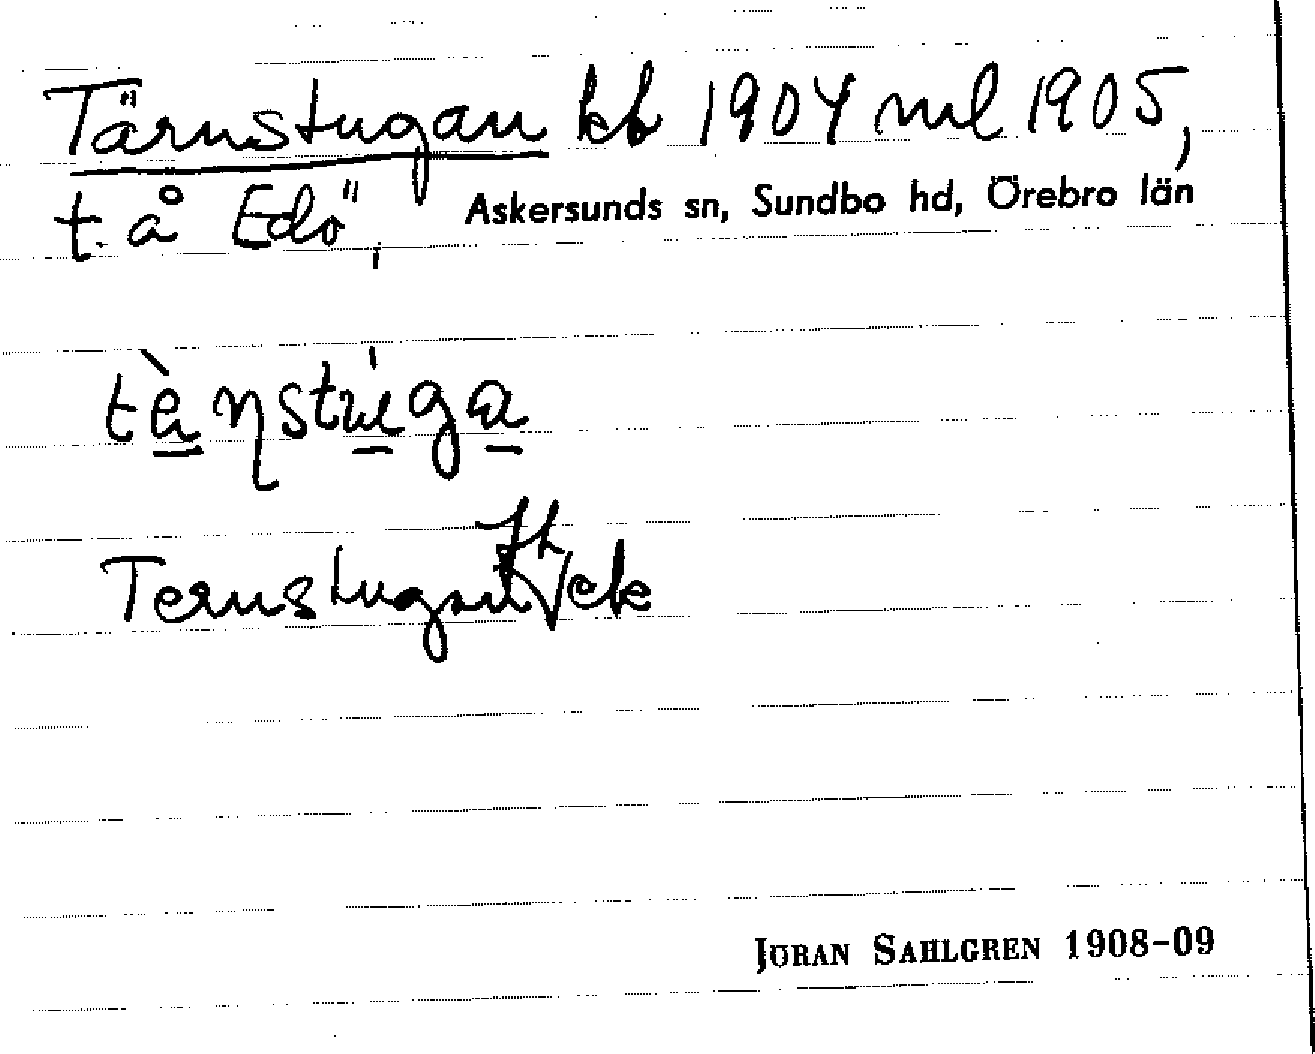 Tärnstugan kb 1904 ml 1905,
t. å Edö, Askersunds sn, Sundbo hd, Örebro län
tæ̀ɳstu̍ga
Ternstugan Jk
JÖRAN SAHLGREN 1908-09